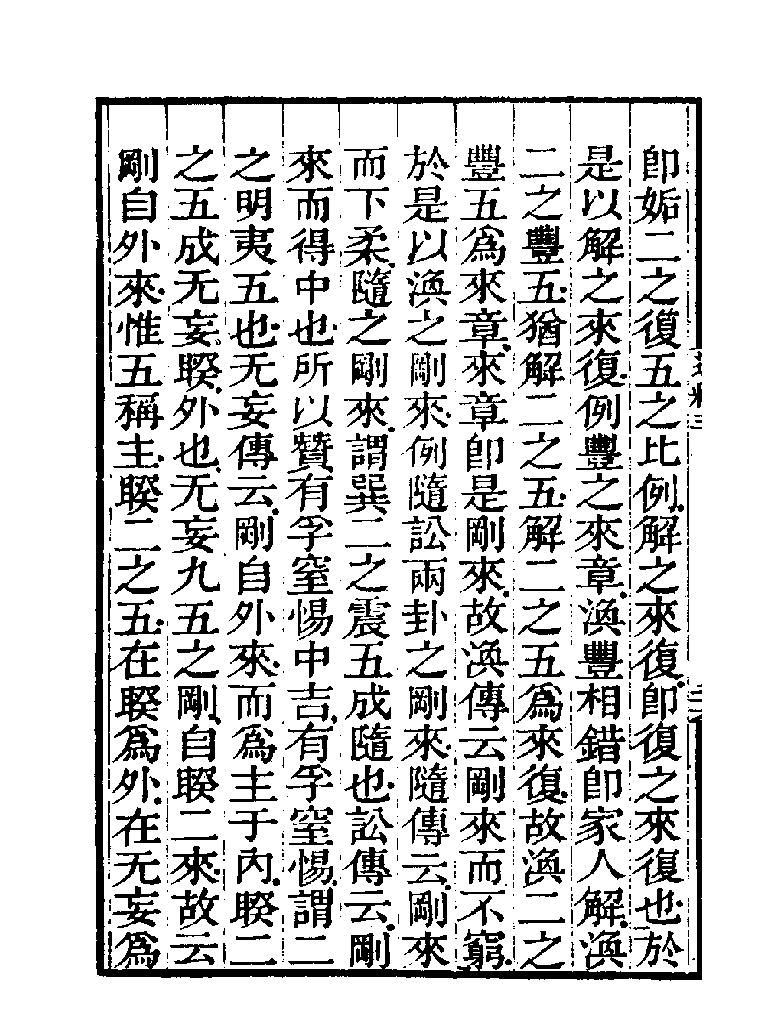 卽姤二之復五之比例解之來復卽復之來復也於
是以解之來復例豐之來章渙豐相錯卽家人解渙
二之豐五猶解二之五解二之五爲來復故渙二之
豐五爲來章來章卽是剛來故渙傳云剛來而不窮
於是以渙之剛來例隨訟兩卦之剛來隨傳云剛來
而下柔隨之剛來謂巽二之震五成隨也訟傳云剛
來而得中也所以贊有孚窒惕中吉有孚窒惕謂二
之明夷五也无妄傳云剛自外來而爲主于內睽二
之五成无妄睽外也无妄九五之剛自睽二來故云
剛自外來惟五稱主睽二之五在睽爲外在无妄爲